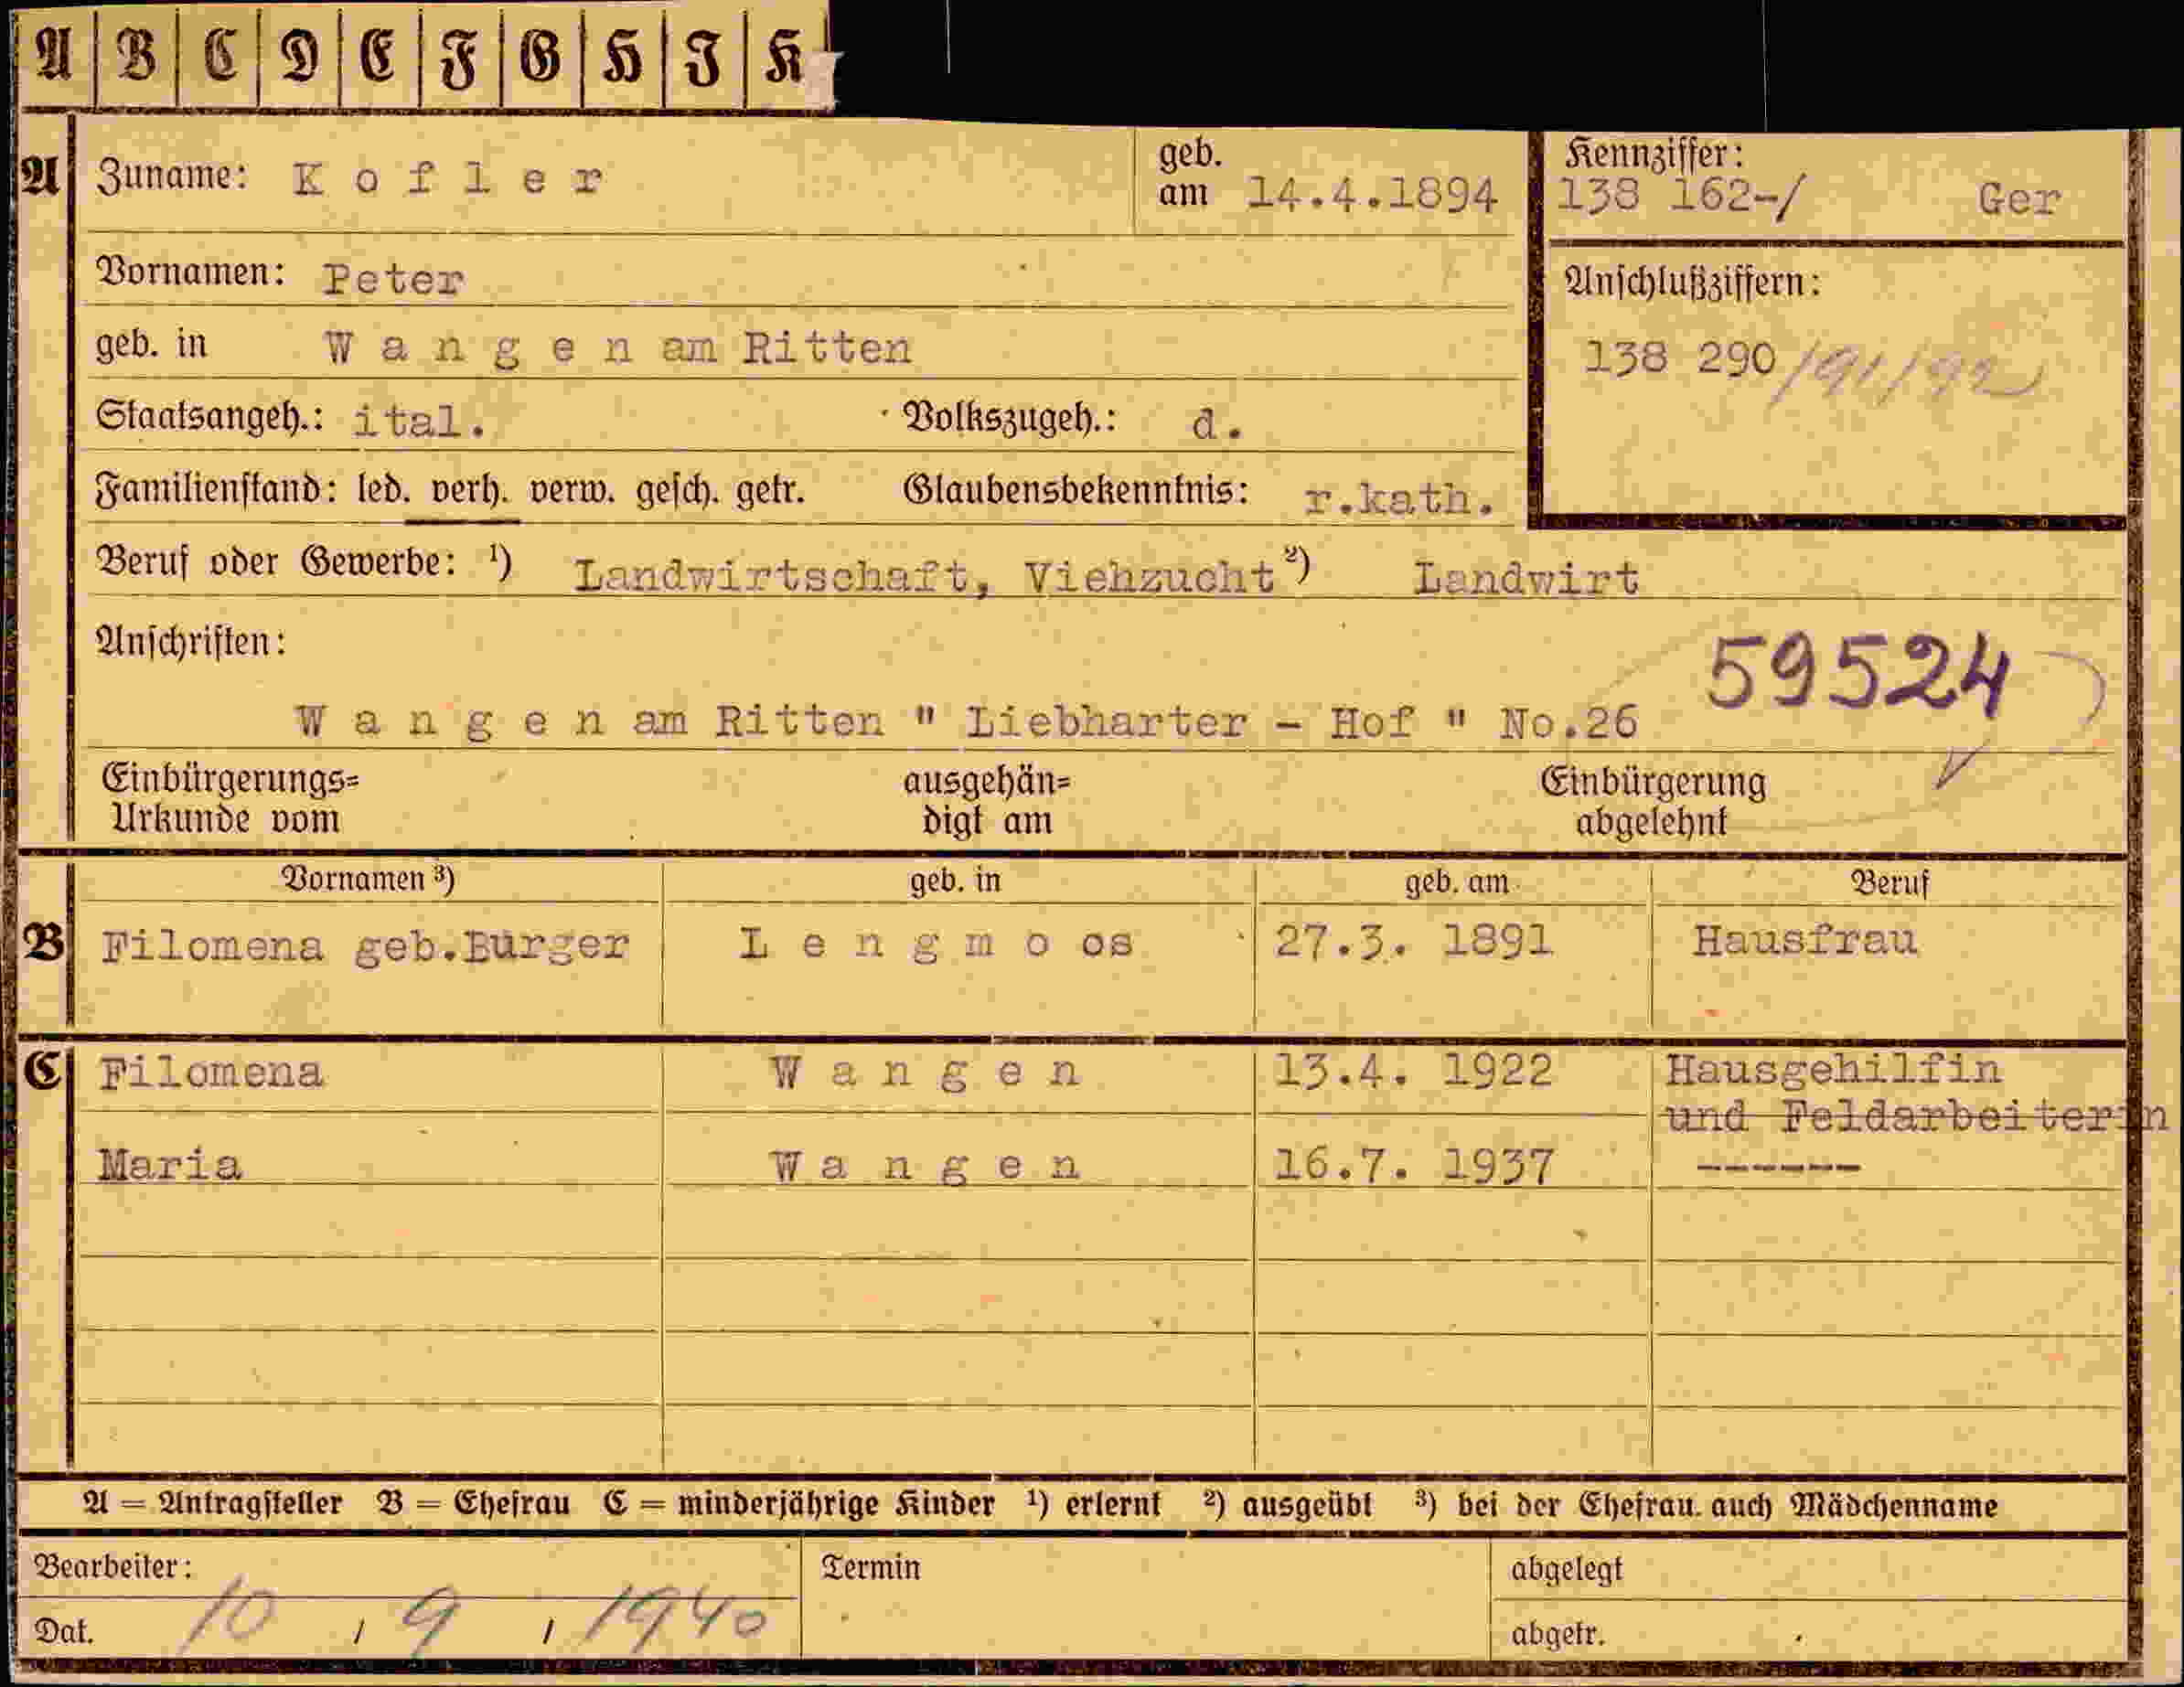 A B C D E F G H I K
A Zuname: Kofler geb. am 14.4.1894
Kennziffer:
138 162-/ Ger
Vornamen: Peter
Anschlußziffern:
138 290/91/92
geb. in Wangen am Ritten
Staatsangeh.: ital. Volkszugeh.: d.
Familienstand: led. verh. verw. gesch. getr. Glaubensbekenntnis: r.kath.
Beruf oder Gewerbe: ¹) Landwirtschaft, Viehzucht ²) Landwirt
Anschriften:
59524
Wangen am Ritten " Liebharter - Hof " No.26
Einbürgerungs= ausgehän= Einbürgerung
Urkunde vom digt am abgelehnt
Vornamen ³) geb. in geb. am Beruf
B Filomena geb.Burger Lengmoos 27.3. 1891 Hausfrau
C Filomena Wangen 13.4. 1922 Hausgehilfin
und Feldarbeiterin
Maria Wangen 16.7. 1937 ------
A = Antragsteller B = Ehefrau C = minderjährige Kinder ¹) erlernt ²) ausgeübt ³) bei der Ehefrau auch Mädchenname
Bearbeiter: Termin abgelegt
Dat. 10 / 9 / 1940 abgetr.